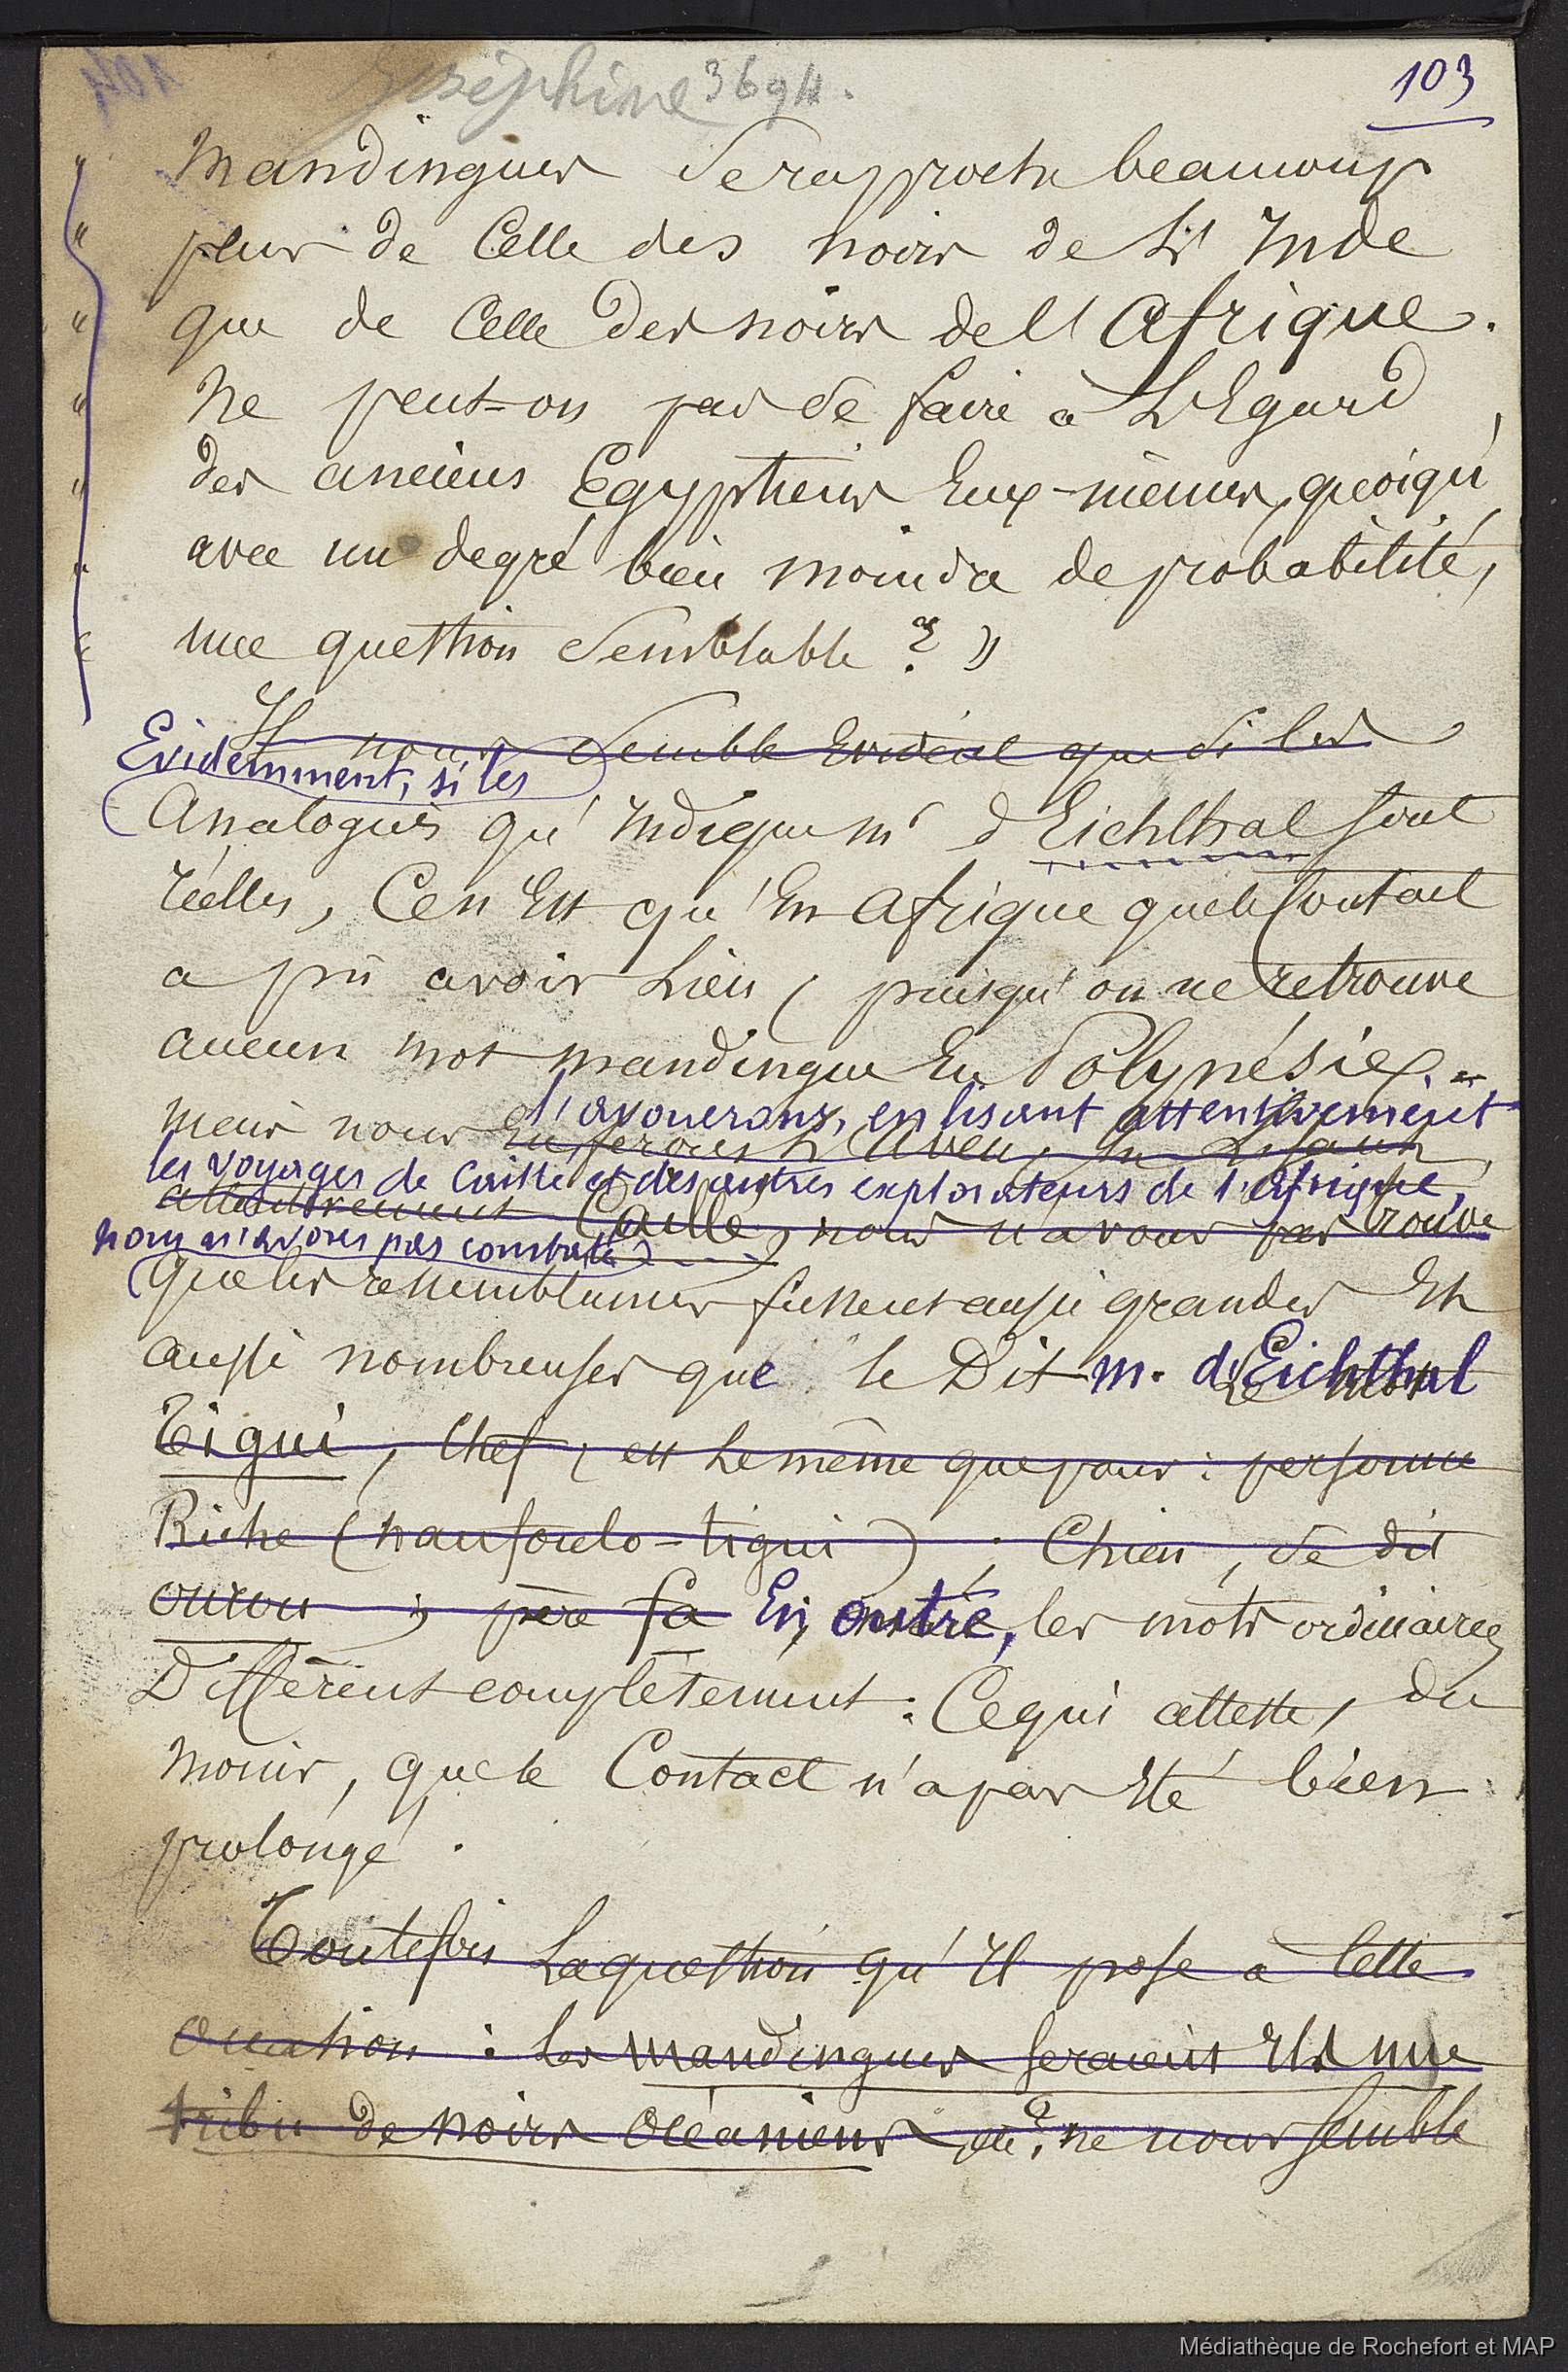 Joséphine 3694.
103
Mandingues se rapproche beaucoup
" plus de celle des noirs de l'Inde
" que de celle des noirs de l'Afrique.
" Ne peut-on pas se faire à L'Egard
" des anciens Egyptiens Eux-mêmes, quoiqu'
" avec un degré bien moindre de probabilité,
" une question semblable ? »
Il nous semble Evident que si les
Evidemment, si les
Analogies qu'Indique Mr d'Eichthal sont
réelles, Ce n'Est qu'En Afrique que le Contact
a pû avoir Lieu (puisqu'on ne retrouve
aucun mot mandingue En Polynésie) -
l'avouerons, en lisant attentivement
mais nous En ferons L'aveu, En Lisant
les voyages de Caillé et des autres explorateurs de l'Afrique,
attentivement Caillé, nous n'avons pas trouvé
nous n'avons pas constaté
que les ressemblances fussent aussi grandes Et
aussi nombreuses que le Dit M. d'Eichthal Le mot
Tigui, Chef, est Le même que pour : personne
Riche (naufoulo-tigui) ; Chien, se dit
ourou ; père fa En outre, les mots ordinaires
Diffèrent complètement : Ce qui atteste, du
moins, que le Contact n'a pas Eté bien
prolongé.
Toutefois La question qu'Il pose à Cette
occasion : Les mandingues seraient Ils une
tribu de noirs Océaniens, etc ? ne nous semble
Médiathèque de Rochefort et MAP